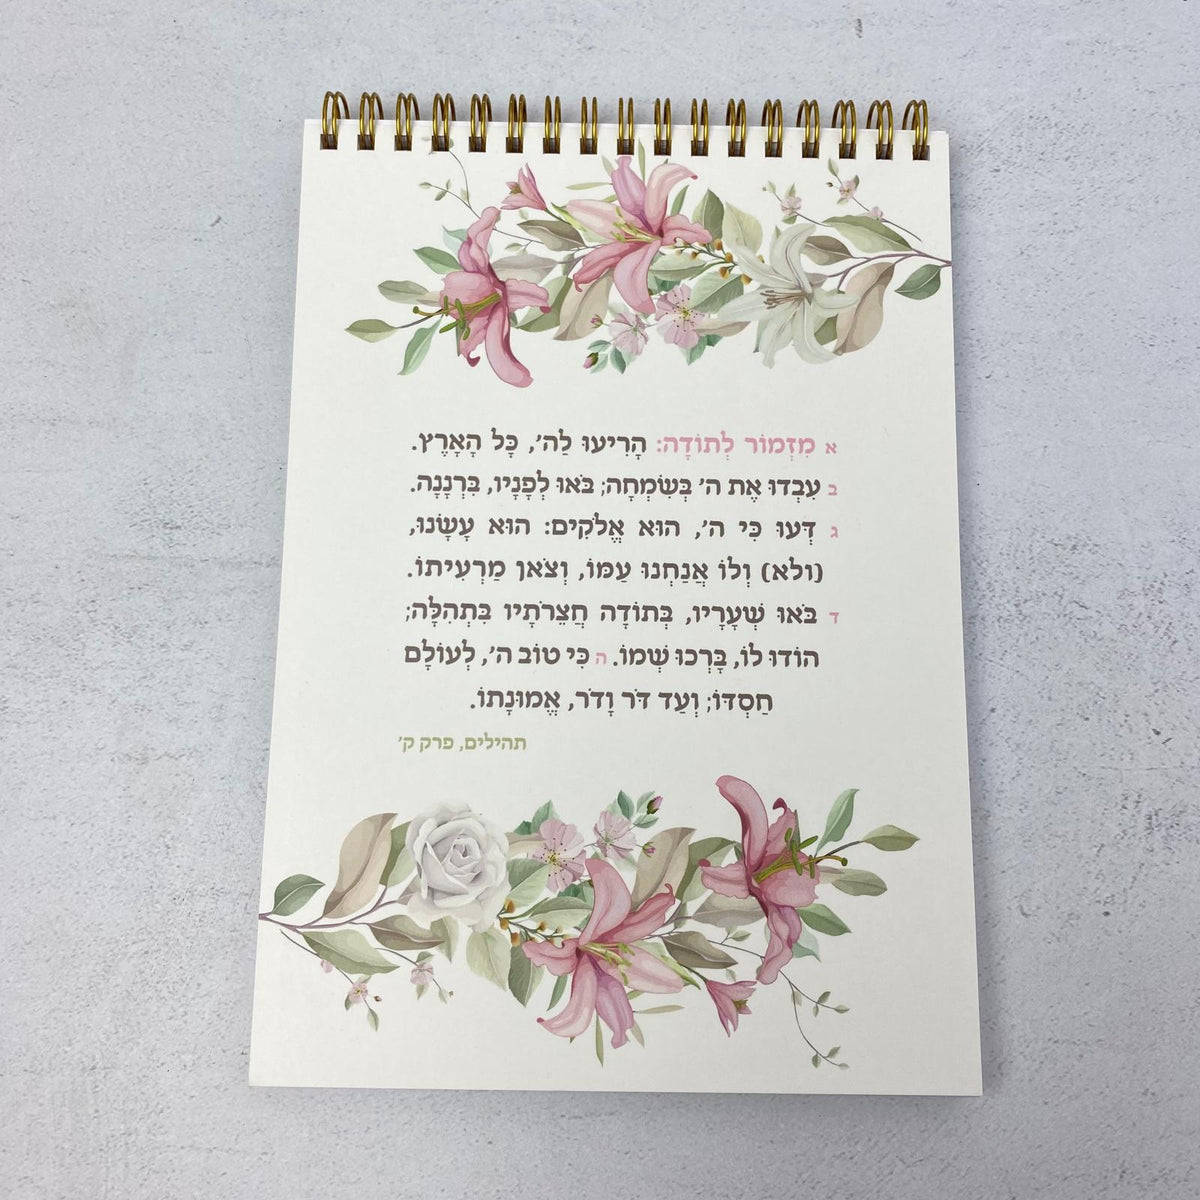 א מִזְמוֹר לְתוֹדָה: הָרִיעוּ לַה׳, כָּל הָאָרֶץ.
ב עִבְדוּ אֶת ה׳ בְּשִׂמְחָה; בֹּאוּ לְפָנָיו, בִּרְנָנָה.
ג דְּעוּ כִּי ה׳, הוּא אֱלֹקִים: הוּא עָשָׂנוּ,
(ולא) וְלוֹ אֲנַחְנוּ עַמּוֹ, וְצֹאן מַרְעִיתוֹ.
ד בֹּאוּ שְׁעָרָיו, בְּתוֹדָה חֲצֵרֹתָיו בִּתְהִלָּה;
הוֹדוּ לוֹ, בָּרְכוּ שְׁמוֹ. ה כִּי טוֹב ה׳, לְעוֹלָם
חַסְדּוֹ; וְעַד דֹּר וָדֹר, אֱמוּנָתוֹ.
תהילים, פרק ק׳